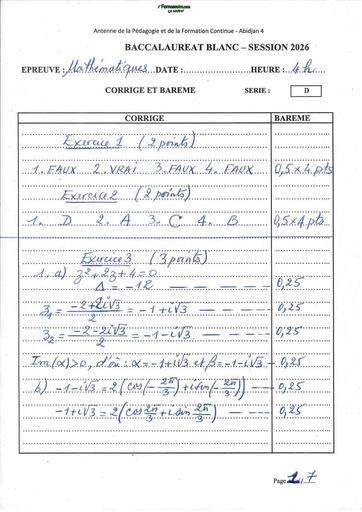 Fomesoutra.com
ça soutra !
Antenne de la Pédagogie et de la Formation Continue - Abidjan 4
BACCALAUREAT BLANC – SESSION 2026
EPREUVE : Mathématiques DATE : HEURE : 4h
CORRIGE ET BAREME SERIE : D
CORRIGE BAREME
Exercice 1 (2 points)
1. FAUX 2. VRAI 3. FAUX 4. FAUX 0,5 x 4 pts
Exercice 2 (2 points)
1. D 2. A 3. C 4. B 0,5x4 pts
Exercice 3 (3 points)
1. a) z²+2z+4=0
Δ = -12 0,25
z₁ = (-2+2i√3)/2 = -1+i√3 0,25
z₂ = (-2-2i√3)/2 = -1-i√3 0,25
Im(α)>0, d'où : α=-1+i√3 et β=-1-i√3 0,25
b) -1-i√3 = 2(cos(-2π/3)+isin(-2π/3)) 0,25
-1+i√3 = 2(cos 2π/3 + i sin 2π/3) 0,25
Page 1/7